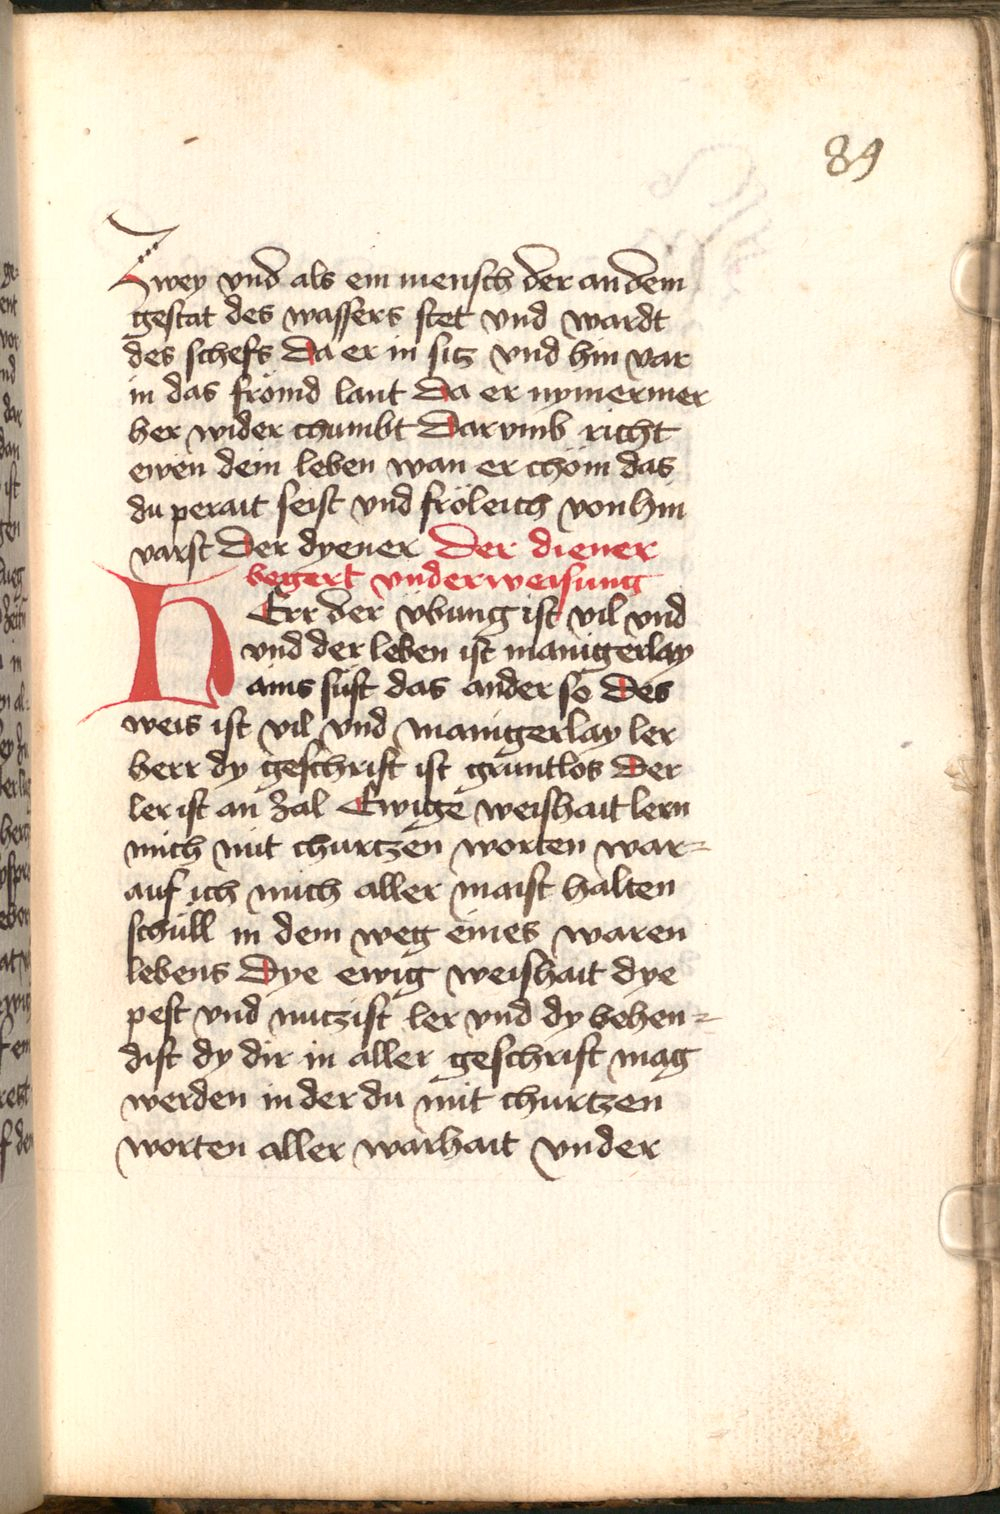 89
Zwey vnd als ein mensch der an dem
gestat des wassers stet vnd wardt
des schefs Da er in sitz vnd hin var
in das frömd lant Da er nymermer
her wider chumbt Dar vmb richt
ewen dein leben wan er chöm das
du perait seist vnd fröleich von hin
varst Der dyener Der diener
begert vnderweisung
HErr der vbung ist vil vnd
vnd der leben ist manigerlay
ains süst das ander so Des
weis ist vil vnd manigerlay ler
herr dy geschrift ist gruntlos Der
ler ist an zal Ewige weishait lern
mich mit churtzen worten war=
auf ich mich aller maist halten
schüll in dem weg eines waren
lebens Dye ewig weishait dye
pest vnd nutzist ler vnd dy behen=
dist dy dir in aller geschrift mag
werden in der du mit churtzen
worten aller warhait vnder